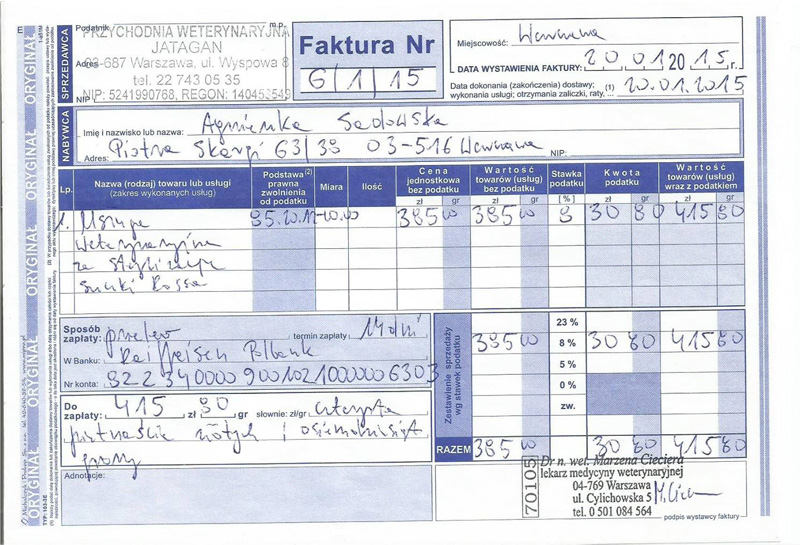 ORYGINAŁ ORYGINAŁ ORYGINAŁ ORYGINAŁ ORYGINAŁ
SPRZEDAWCA
Podatnik m.p.
PRZYCHODNIA WETERYNARYJNA
JATAGAN
Adres
03-687 Warszawa, ul. Wyspowa 8
tel. 22 743 05 35
NIP: 5241990768, REGON: 140453549
NIP
Faktura Nr
6/1/15
Miejscowość: Warszawa
DATA WYSTAWIENIA FAKTURY: 20.01.2015 r.
Data dokonania (zakończenia) dostawy;
wykonania usługi; otrzymania zaliczki, raty, ... (1) 20.01.2015
NABYWCA
Imię i nazwisko lub nazwa: Agnieszka Sadowska
Adres: Piotra Skargi 63/39 03-516 Warszawa NIP:
Lp. Nazwa (rodzaj) towaru lub usługi (zakres wykonanych usług) Podstawa (2) prawna zwolnienia od podatku Miara Ilość Cena jednostkowa bez podatku zł gr Wartość towarów (usług) bez podatku zł gr Stawka podatku [%] Kwota podatku zł gr Wartość towarów (usług) wraz z podatkiem zł gr
1. Usługa 385 00 385 00 8 30 80 415 80
Weterynaryjna
za sterylizację
suki Rossa
Sposób zapłaty: przelew termin zapłaty 14 dni
W Banku: Raiffeisen Polbank
Nr konta:
Do zapłaty: 415 zł 80 gr słownie: zł/gr czterysta
piętnaście złotych i osiemdziesiąt
groszy
Adnotacje:
Zestawienie sprzedaży wg stawek podatku
23 %
385 00 8 % 30 80 415 80
5 %
0 %
zw.
RAZEM 385 00 30 80 415 80
70105
Dr n. wet. Marzena Cieciera
lekarz medycyny weterynaryjnej
04-769 Warszawa
ul. Cylichowska 5
tel. 0 501 084 564
podpis wystawcy faktury